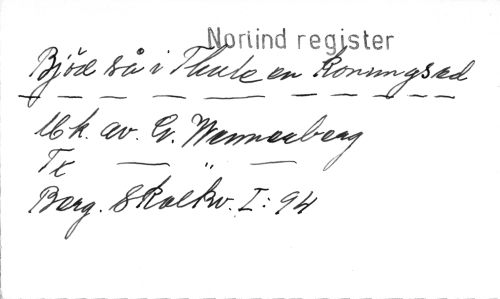 Norlind register
Bjöd så i Thule en konungsed
Mk. av. G. Wennerberg
Tx — " —
Berg. Skolkv. I: 94